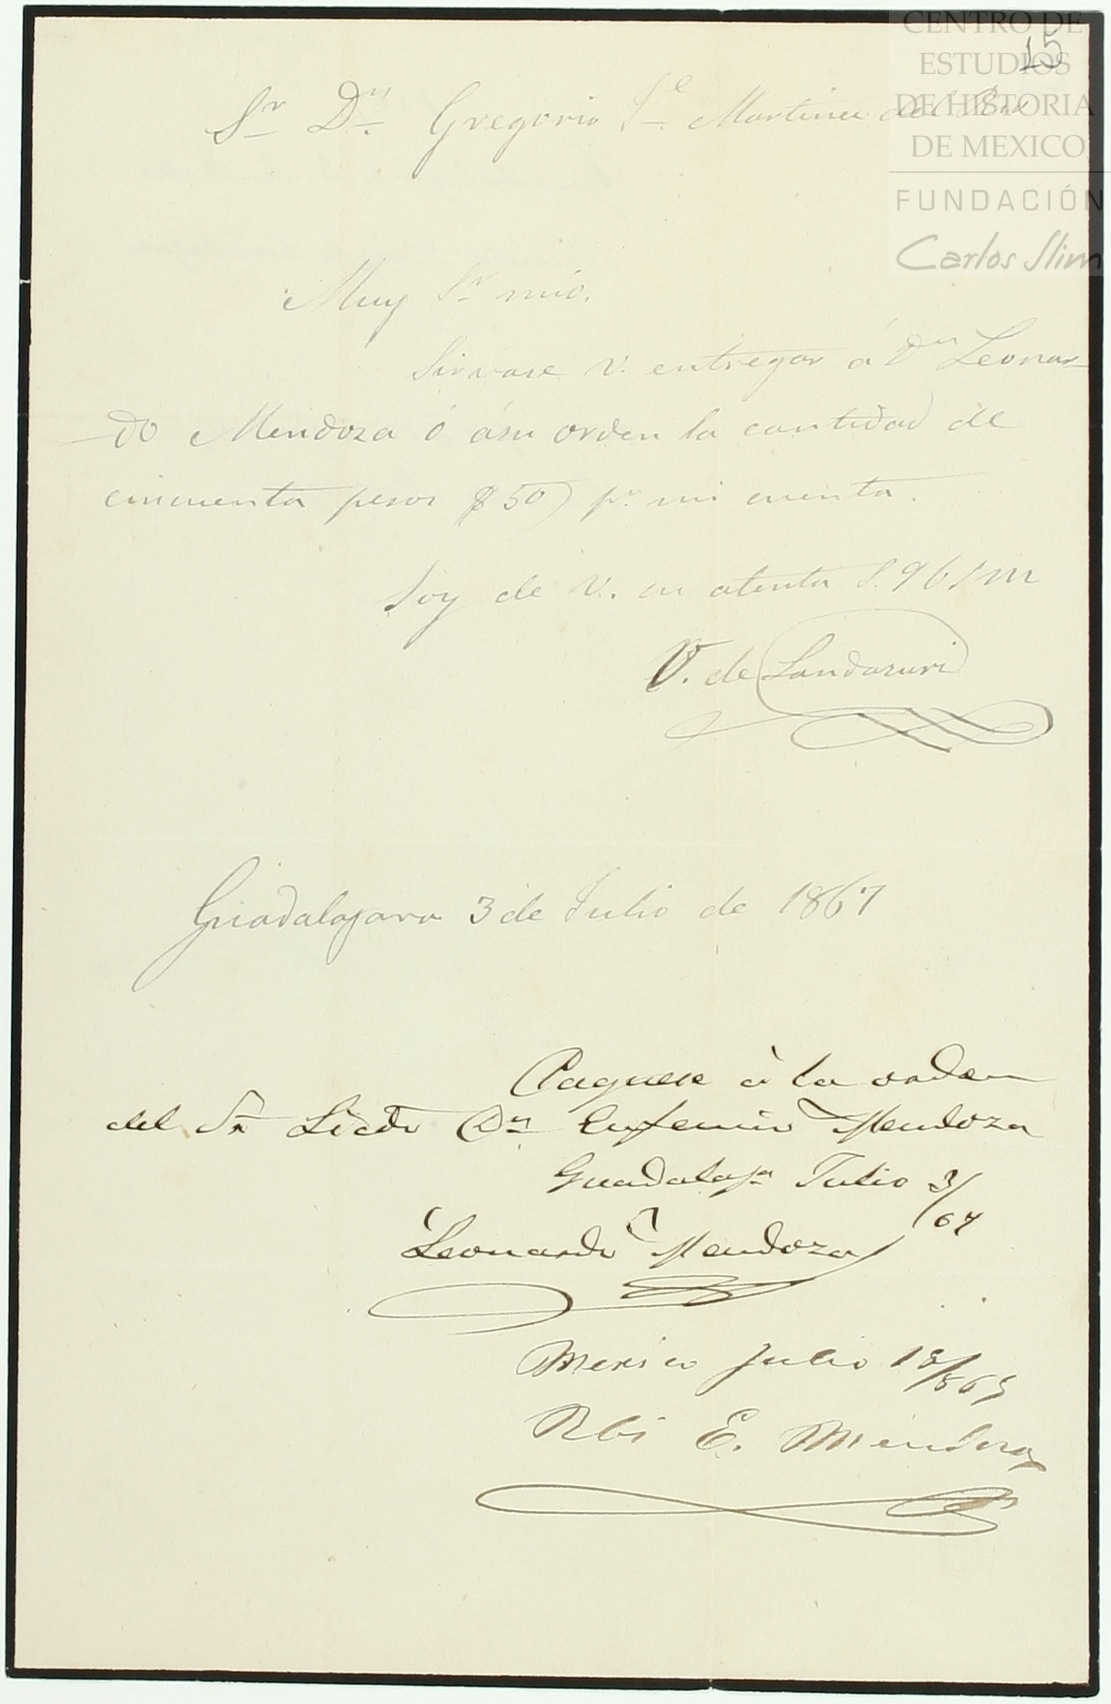 CENTRO DE
ESTUDIOS
DE HISTORIA
DE MEXICO
FUNDACIÓN
Carlos Slim
15
Sr Dn. Gregorio Je. Martinez del Rio
Muy Sr mio.
Sirvase V. entregar á Dn Leonar-
do Mendoza ó ásu orden la cantidad de
cincuenta pesos $50) pr. mi cuenta.
Soy de V. su atenta S. q b s m
V. de Landazuri
Guadalajara 3 de Julio de 1867
Paguese à la orden
del Sr Licdo Dn Eufemio Mendoza
Guadalaja Julio 3/67
Leonardo Mendoza
Mexico Julio 18/867
Rbi E. Mendoza